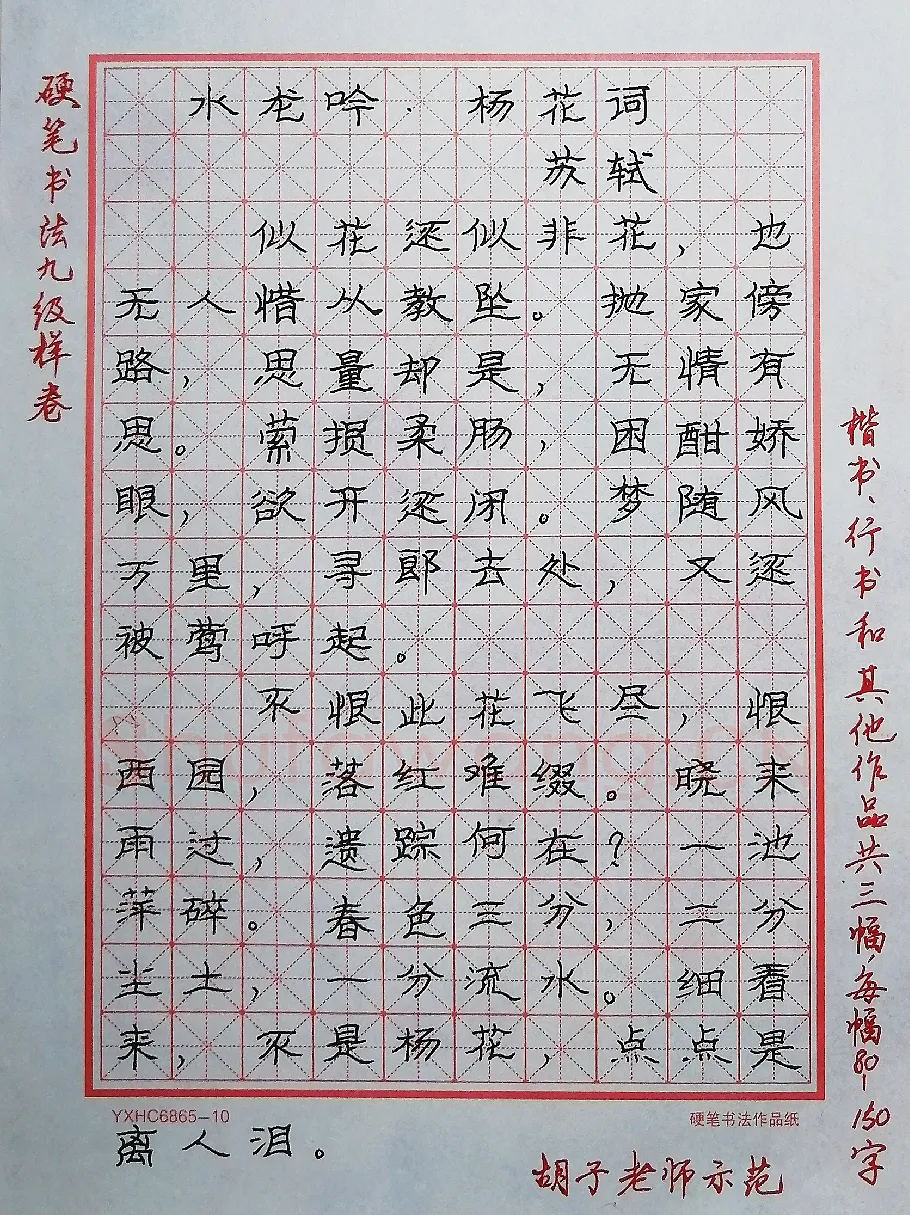 硬笔书法九级样卷
水龙吟·杨花词
苏轼
似花还似非花，也
无人惜从教坠。抛家傍
路，思量却是，无情有
思。萦损柔肠，困酣娇
眼，欲开还闭。梦随风
万里，寻郎去处，又还
被莺呼起。
不恨此花飞尽，恨
西园，落红难缀。晓来
雨过，遗踪何在？一池
萍碎。春色三分，二分
尘土，一分流水。细看
来，不是杨花，点点是
离人泪。
YXHC6865-10
硬笔书法作品纸
楷书、行书和其他作品共三幅，每幅80-150字
胡子老师示范